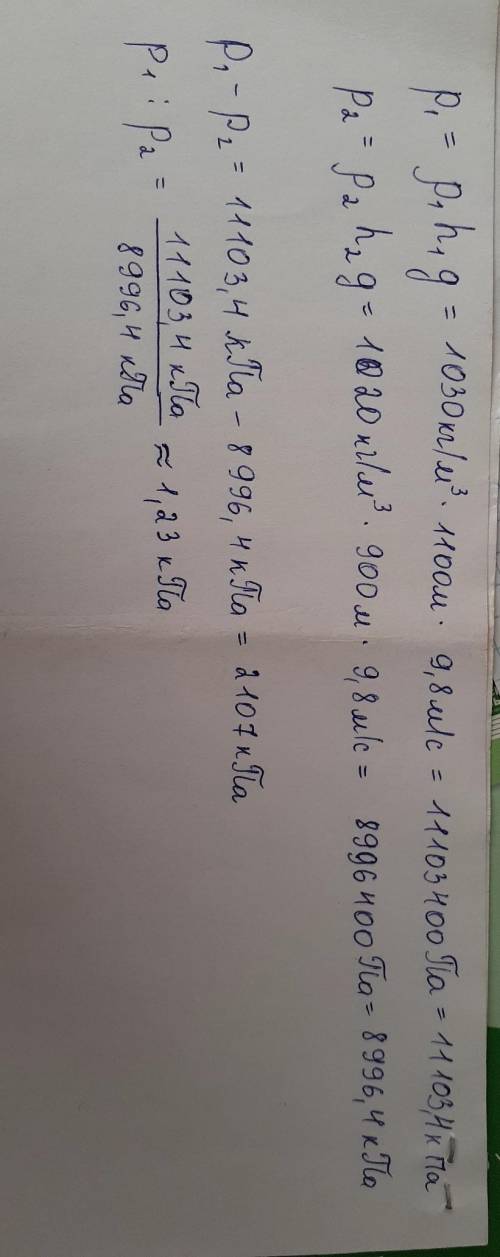 p₁ = ρ₁h₁g = 1030кг/м³ · 1100м · 9,8м/с = 11103400Па = 11103,4кПа
p₂ = ρ₂h₂g = 1020кг/м³ · 900м · 9,8м/с = 8996400Па = 8996,4кПа
p₁ - p₂ = 11103,4кПа - 8996,4кПа = 2107кПа
p₁ : p₂ = 11103,4кПа / 8996,4кПа ≈ 1,23кПа